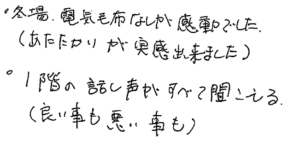 ・冬場、電気毛布なしが感動でした。
(あたたかりが実感出来ました)
・1階の話し声がすべて聞こえる。
(良い事も悪い事も)